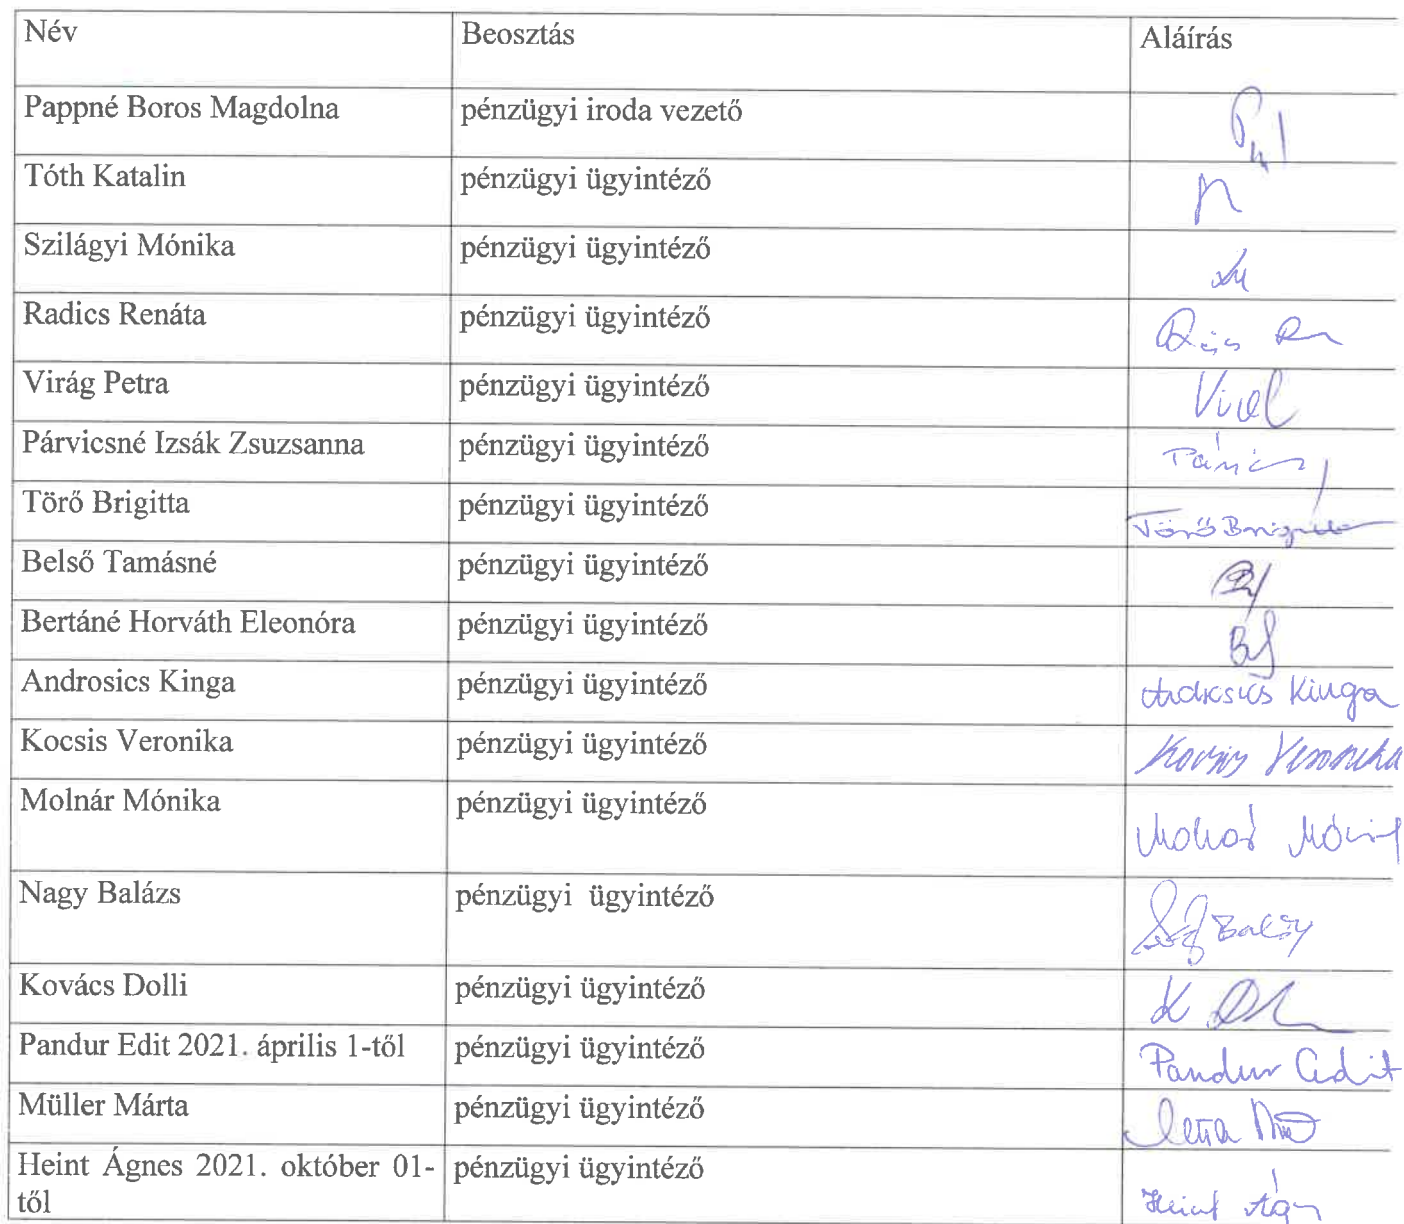 Név Beosztás Aláírás
Pappné Boros Magdolna pénzügyi iroda vezető
Tóth Katalin pénzügyi ügyintéző
Szilágyi Mónika pénzügyi ügyintéző
Radics Renáta pénzügyi ügyintéző
Virág Petra pénzügyi ügyintéző
Párvicsné Izsák Zsuzsanna pénzügyi ügyintéző
Törő Brigitta pénzügyi ügyintéző Törő Brigitta
Belső Tamásné pénzügyi ügyintéző
Bertáné Horváth Eleonóra pénzügyi ügyintéző
Androsics Kinga pénzügyi ügyintéző Androsics Kinga
Kocsis Veronika pénzügyi ügyintéző Kocsis Veronika
Molnár Mónika pénzügyi ügyintéző Molnár Mónika
Nagy Balázs pénzügyi ügyintéző
Kovács Dolli pénzügyi ügyintéző
Pandur Edit 2021. április 1-től pénzügyi ügyintéző Pandur Edit
Müller Márta pénzügyi ügyintéző
Heint Ágnes 2021. október 01-
től pénzügyi ügyintéző Heint Ágn